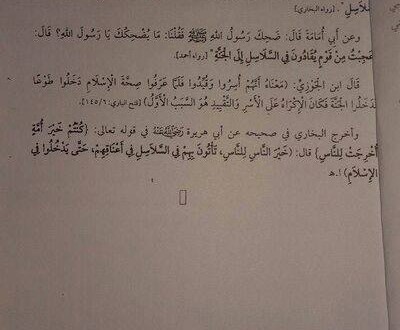 السَّلَاسِلِ". [رواه البخاري]
وعن أبي أمَامَةَ قَالَ: ضَحِكَ رَسُولُ اللهِ ﷺ فَقُلْنَا: مَا يُضْحِكُكَ يَا رَسُولَ اللهِ؟ قَالَ:
عَجِبْتُ مِنْ قَوْمٍ يُقَادُونَ فِي السَّلَاسِلِ إِلَى الْجَنَّةِ" [رواه أحمد]
قَالَ ابن الْجَوْزِيِّ: (مَعْنَاهُ أَنَّهُمْ أُسِرُوا وَقُيِّدُوا فَلَمَّا عَرَفُوا صِحَّةَ الْإِسْلَامِ دَخَلُوا طَوْعًا
فَدَخَلُوا الْجَنَّةَ فَكَانَ الْإِكْرَاهُ عَلَى الْأَسْرِ وَالتَّقْيِيدِ هُوَ السَّبَبُ الْأَوَّلُ) [فتح الباري: ٦/ ١٤٥]
وأخرج البخاري في صحيحه عن أبي هريرة رَضِيَ اللَّهُ عَنْهُ في قوله تعالى: {كُنْتُمْ خَيْرَ أُمَّةٍ
أُخْرِجَتْ لِلنَّاسِ} قال: (خَيْرَ النَّاسِ لِلنَّاسِ، تَأْتُونَ بِهِمْ فِي السَّلَاسِلِ فِي أَعْنَاقِهِمْ، حَتَّى يَدْخُلُوا فِي
الْإِسْلَامِ) ا.هـ